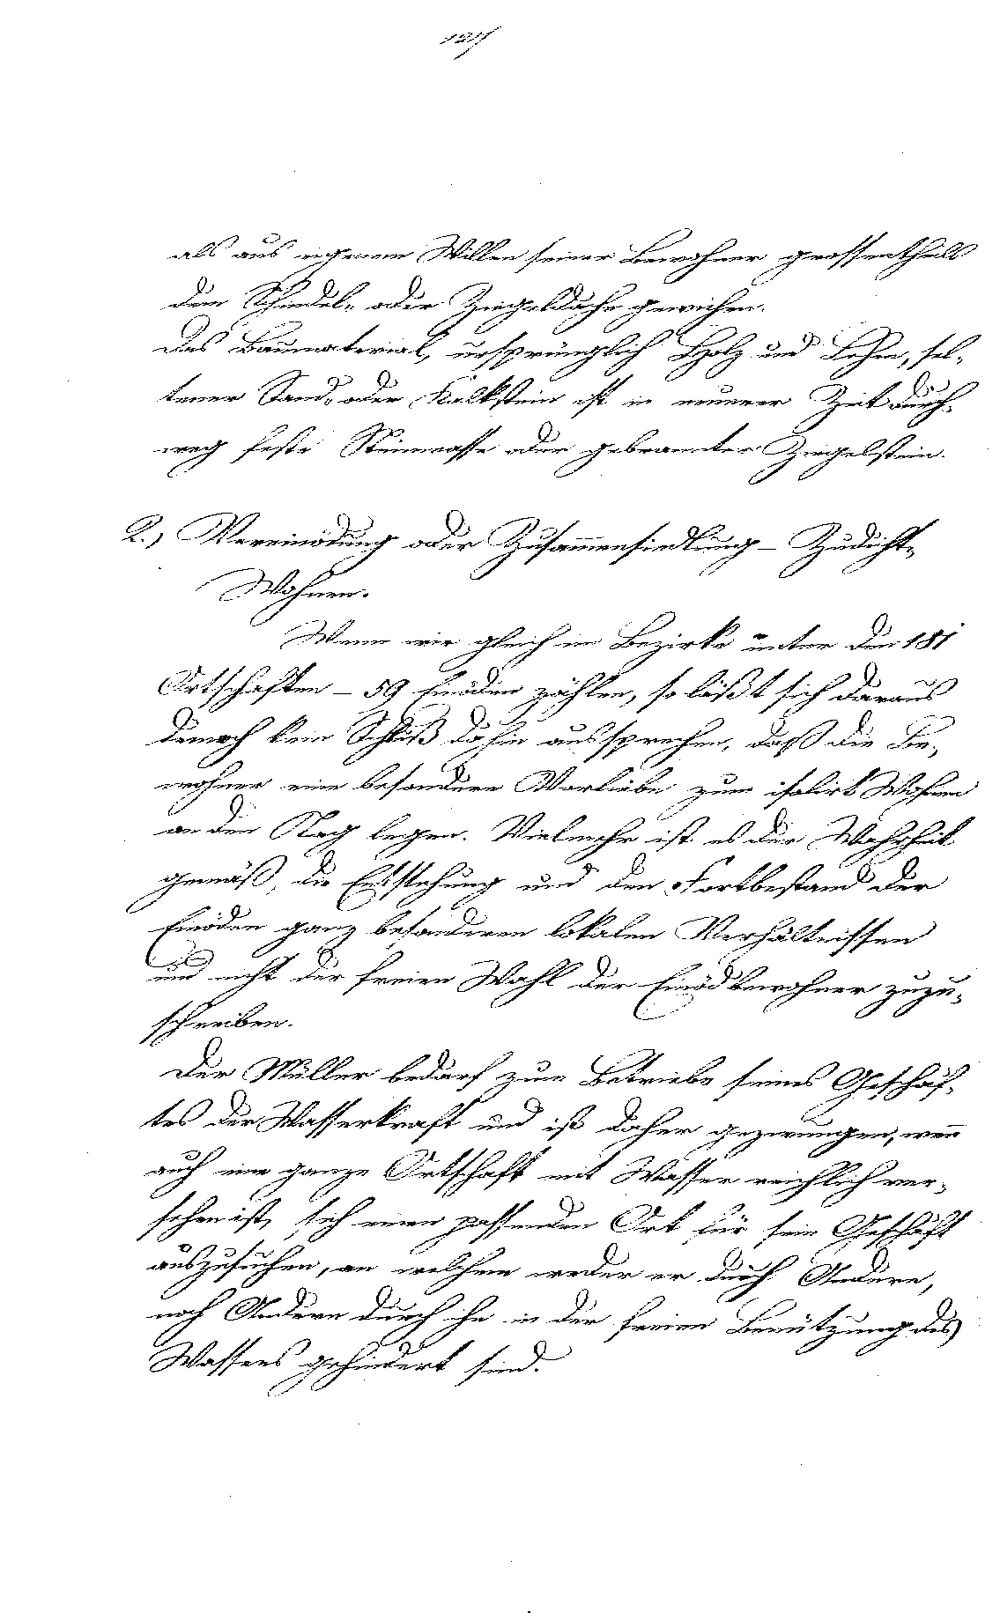 127
als aus eigenem Willen seiner Bewohner grossentheils
dem Schindel- oder Ziegeldache gewichen.
Das Baumaterial, ursprünglich Holz und Lehm, sel-
tener Sand- oder Kalkstein ist in neuerer Zeit durch-
weg feste Steinmasse oder gebrannter Ziegelstein.
2.) Vereinödung oder Zusam̄ensiedlung – Zudicht-
Wohnen.
Wenn wir gleich im Bezirke unter den 181
Ortschaften – 59 Einöden zählen, so läßt sich daraus
dennoch kein Schluß dahin aussprechen, daß die Be-
wohner eine besondere Vorliebe zum isolirt Wohnen
an den Tag legen. Vielmehr ist es der Wahrheit
gemäß, die Entstehung und den Fortbestand der
Einöden ganz besonderen lokalen Verhältnissen
und nicht der freien Wahl der Einödbewohner zuzu-
schreiben.
Der Müller bedarf zum Betriebe seines Geschäf-
tes der Wasserkraft und ist daher gezwungen, wen̄
auch eine ganze Ortschaft mit Wasser reichlich ver-
sehen ist, sich einen passenden Ort für sein Geschäft
auszusuchen, an welchem weder er durch Andere,
noch Andere durch ihn in der freien Benützung des
Wassers gehindert sind.